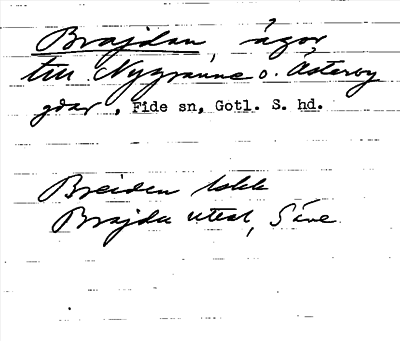 Brajdan, ägor
till Nygranne o. Österby
gdar, Fide sn, Gotl. S. hd.
Breiden lokk
Brajdu utest, Säve